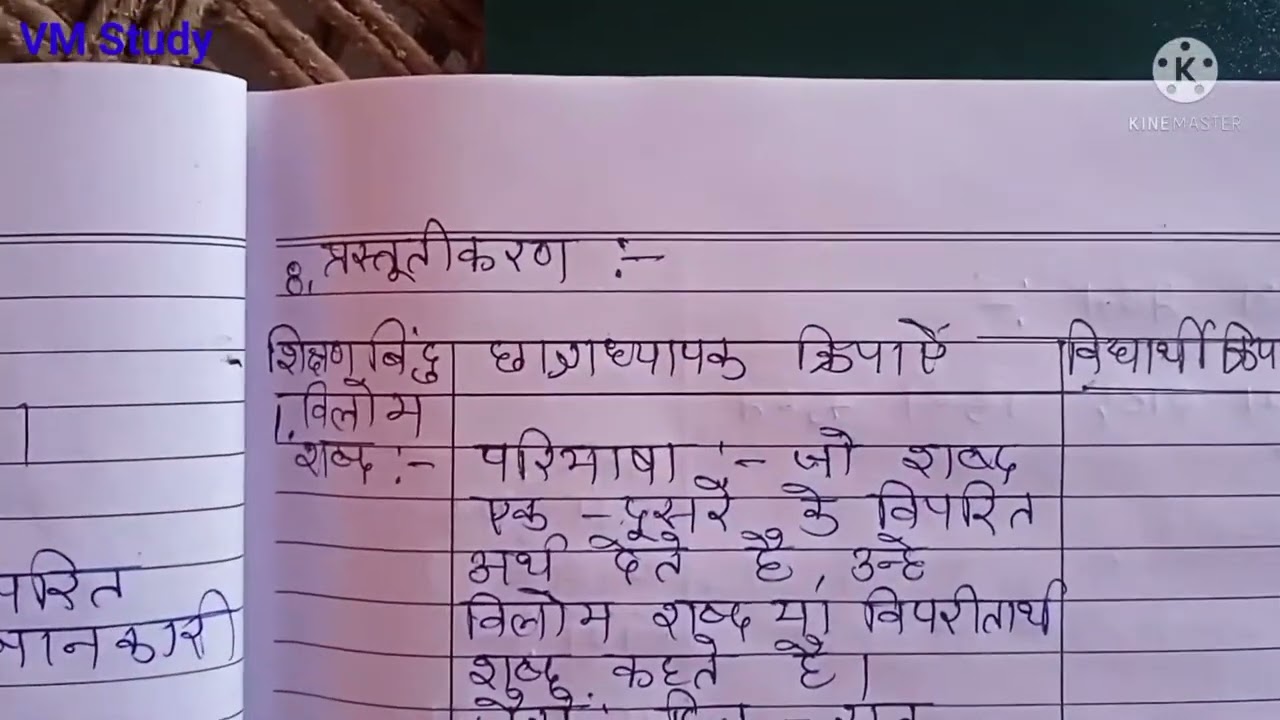 VM Study
K
KINEMASTER
8. प्रस्तूतीकरण :-
शिक्षण बिंदु छात्राध्यापक क्रियाऐं विद्यार्थी क्रिय
1. विलोम
शब्द :-
परिभाषा :- जो शब्द
एक - दूसरे के विपरित
अर्थ देते है, उन्हे
विलोम शब्द या विपरीतार्थ
शब्द कहते है।
परित
जानकारी